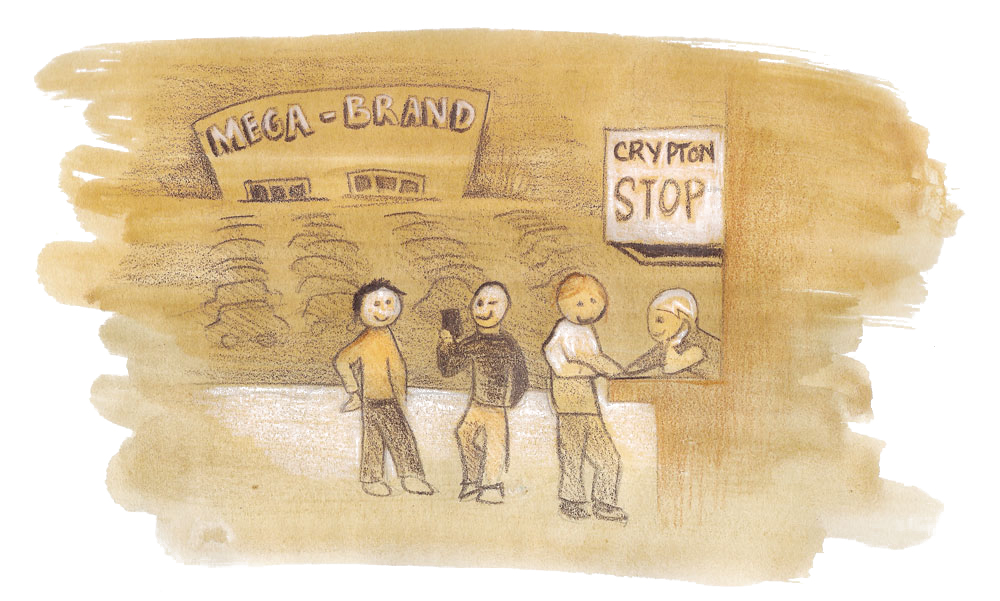 MEGA-BRAND
CRYPTON
STOP